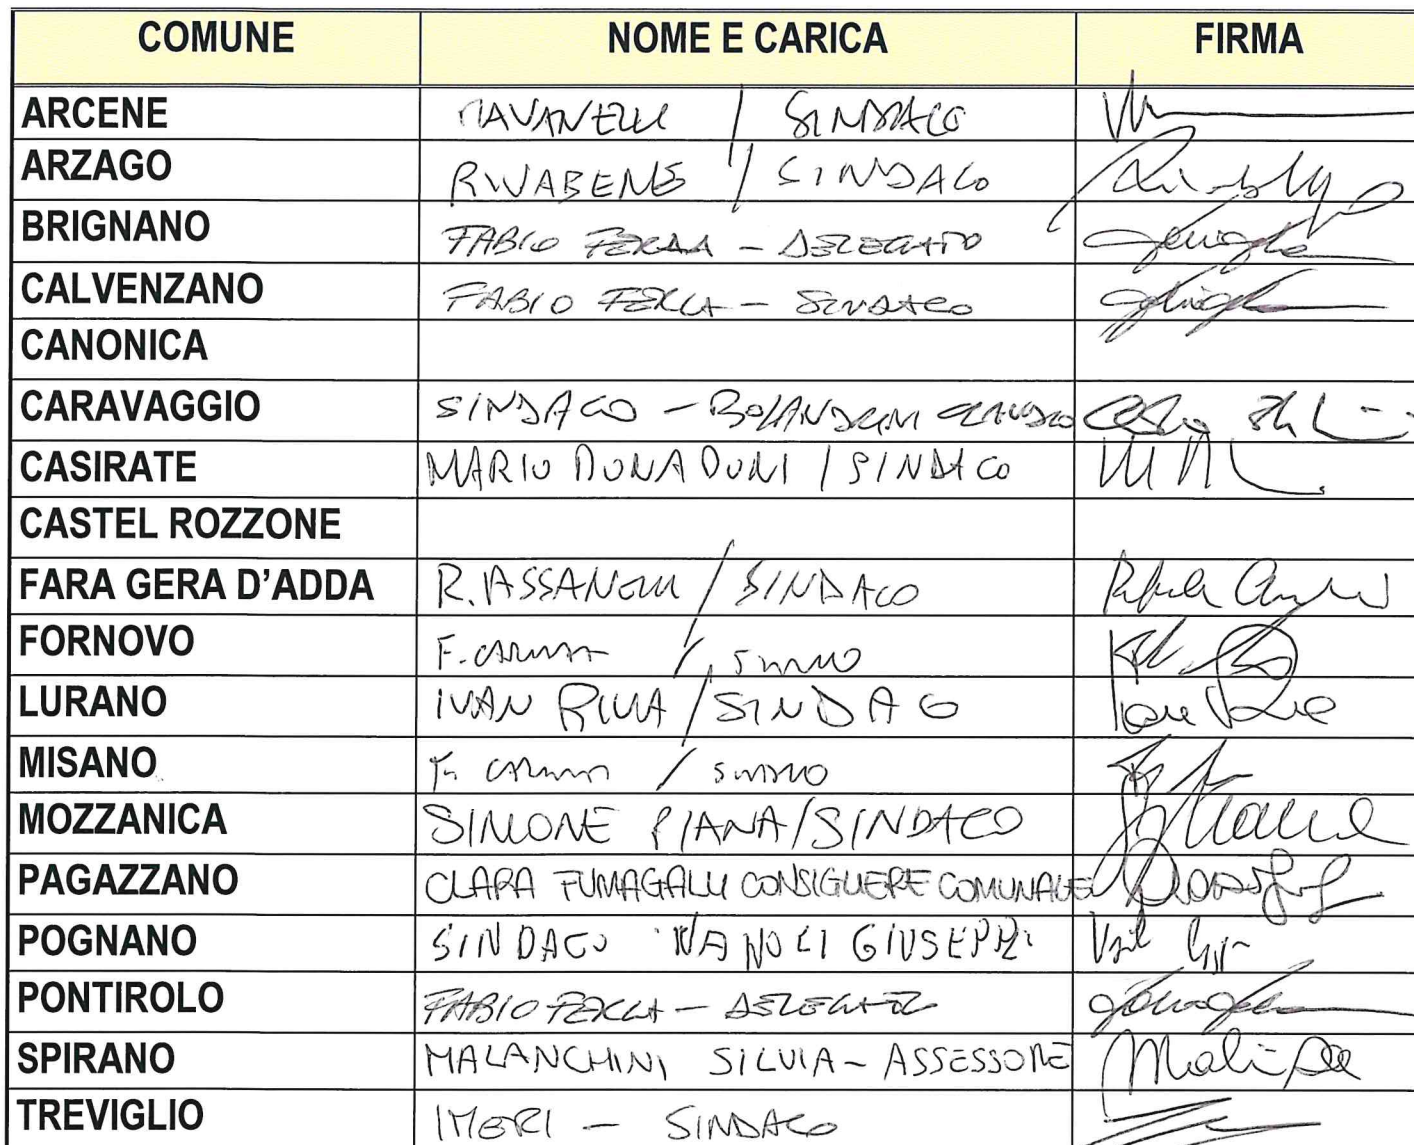 COMUNE NOME E CARICA FIRMA
ARCENE RAVANELLI / SINDACO
ARZAGO RIVABENE / SINDACO
BRIGNANO FABIO FERLA - DELEGATO
CALVENZANO FABIO FERLA - SINDACO
CANONICA
CARAVAGGIO SINDACO - BOLANDRINI CLAUDIO
CASIRATE MARIO DONADONI / SINDACO
CASTEL ROZZONE
FARA GERA D'ADDA R. ASSANELLI / SINDACO
FORNOVO F. / SINDACO
LURANO IVAN RIVA / SINDACO
MISANO / SINDACO
MOZZANICA SIMONE PIANA/SINDACO
PAGAZZANO CLARA FUMAGALLI CONSIGLIERE COMUNALE
POGNANO SINDACO NANOLI GIUSEPPE
PONTIROLO FABIO FERLA - DELEGATO
SPIRANO MALANCHINI SILVIA - ASSESSORE
TREVIGLIO IMERI - SINDACO